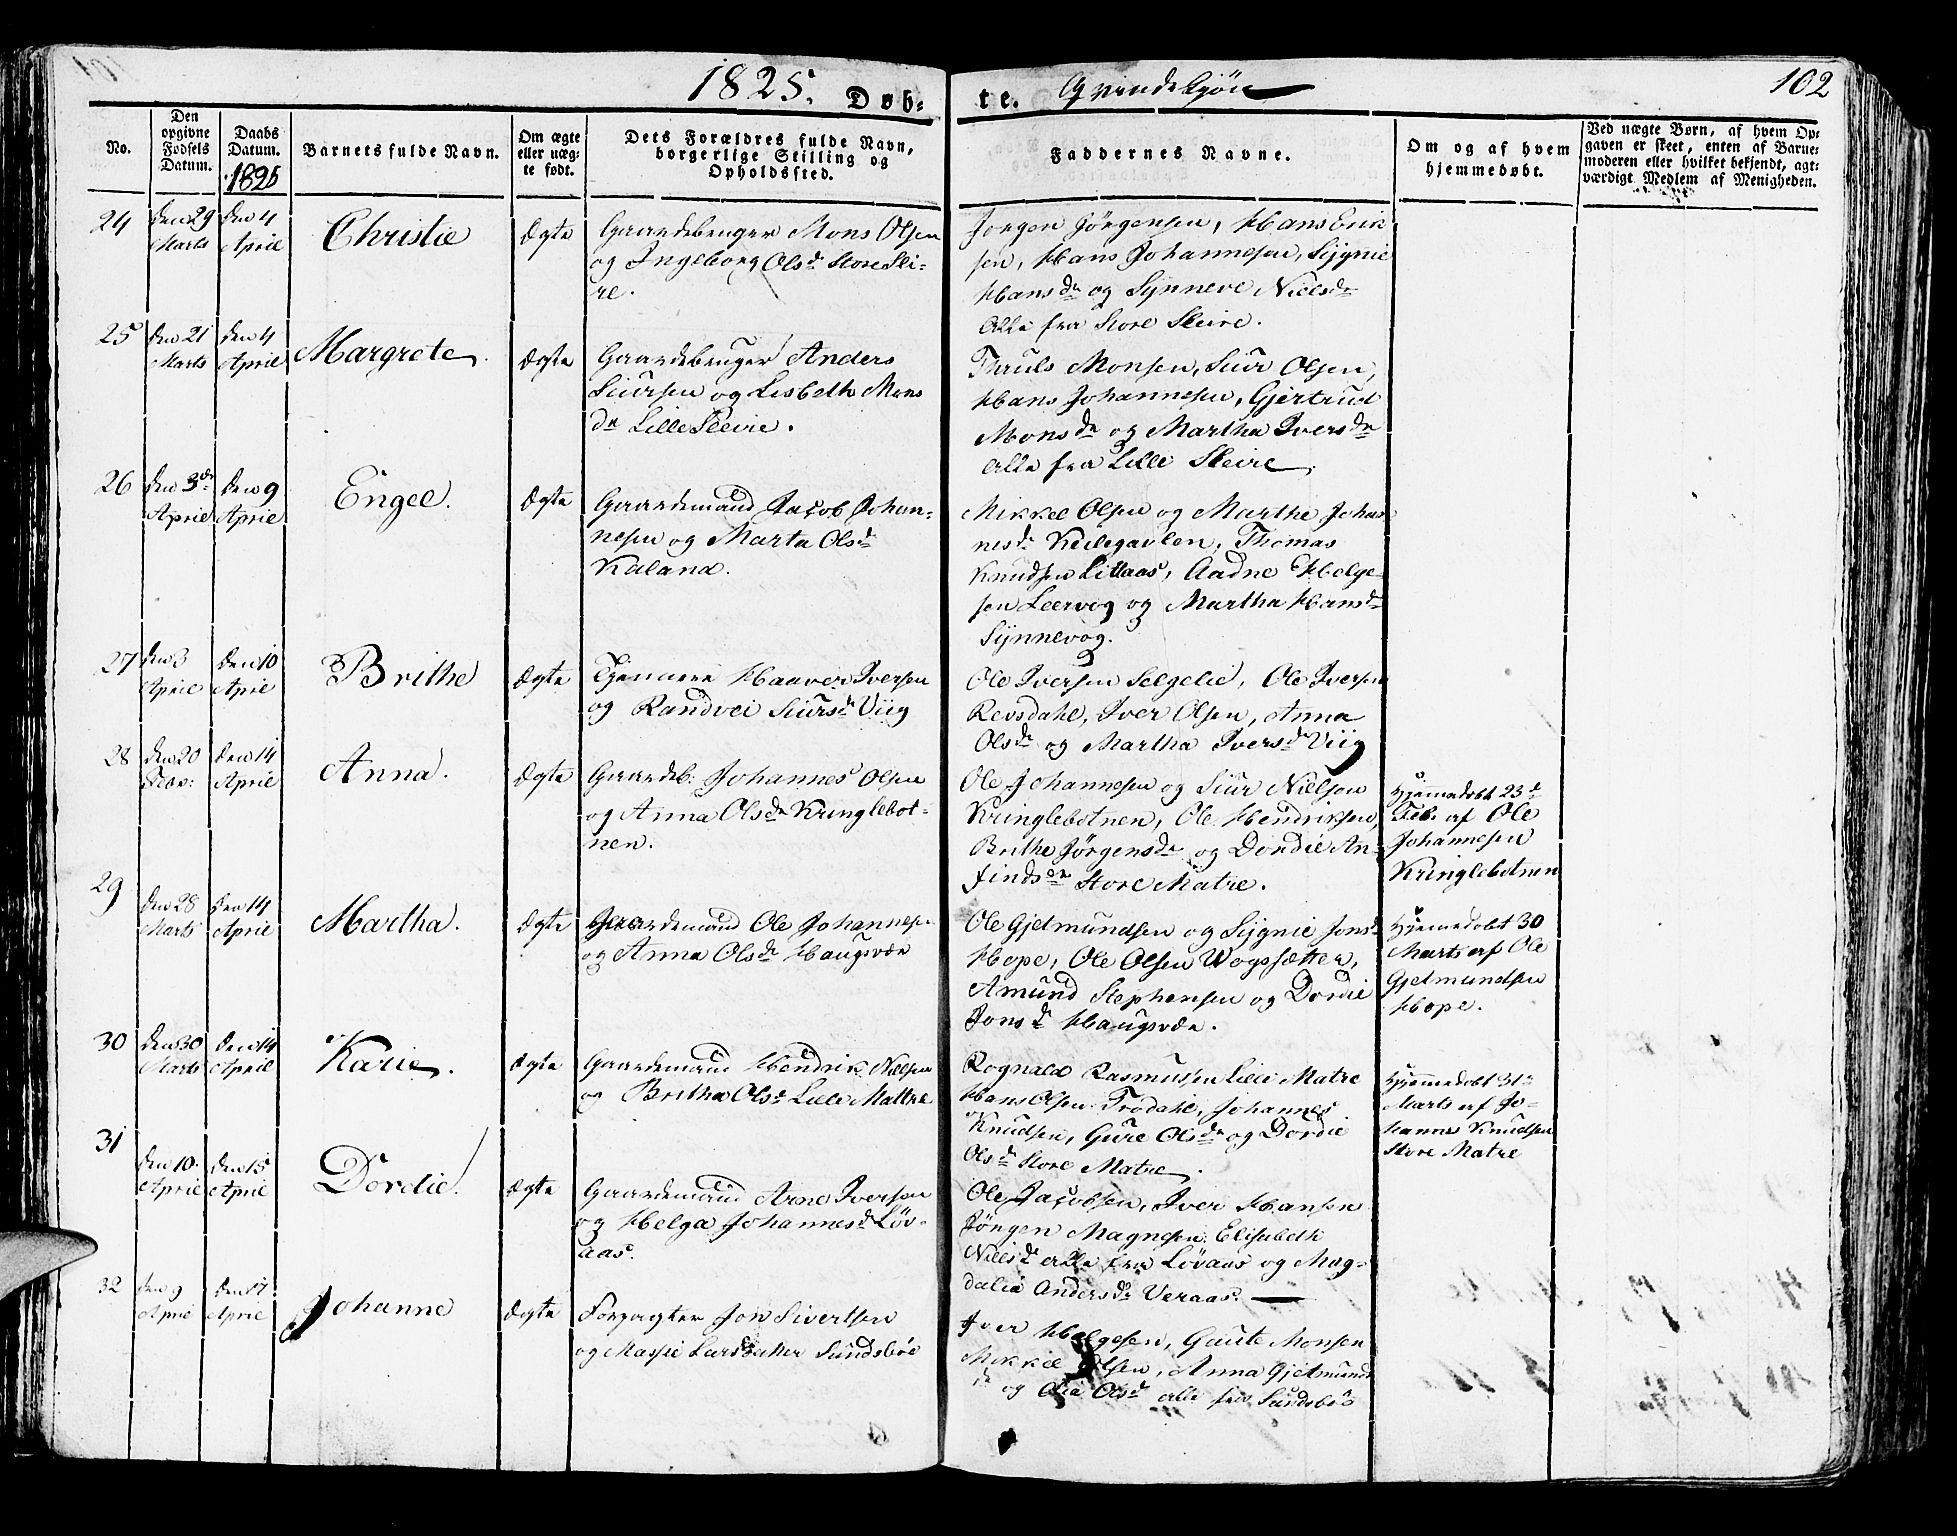 1825. Døb-
te. Qvindekjøn
102
No.
Den opgivne Fødsels Datum.
Daabs Datum. 1825
Barnets fulde Navn.
Om ægte eller uægte født.
Dets Forældres fulde Navn, borgerlige Stilling og Opholdssted.
Faddernes Navne.
Om og af hvem hjemmedøbt.
Ved uægte Børn, af hvem Op-
gaven er skeet, enten af Barne-
moderen eller hvilket bekjendt, agt-
værdigt Medlem af Menigheden.
24 den 29 Marts den 4 April Christie Ægte
Gaardebruger Mons Olsen
og Ingeborg Olsdr Store Sli-
re.
Jörgen Jörgensen, Hans Erik
sen, Hans Johannesen, Sygnie
Hansdr og Synneve Nielsdr
alle fra Store Sleire.
25 den 21 Marts den 4 April Margrete. Ægte
Gaardebruger Anders
Siursen og Lisbeth Mons
dr Lille Sleire.
Truls Monsen, Siur Olsen,
Hans Johannesen, Gjertrud
Monsdr og Martha Iversdr
alle fra Lille Sleire.
26 den 3de April den 9 April Engel. Ægte
Gaardemand Jacob Johan-
nesen og Marta Olsdr
Kaland.
Mikkel Olsen og Marthe Johan
nesdr Keilegavlen, Thomas
Knudsen Litlaas, Aadne Helge-
sen Leervog og Martha Hansdr
Synnevog.
27 den 3 April den 10 April Brithe Ægte
Tjennere Haaver Iversen
og Randvei Siursdr Viig
Ole Iversen Selgelie, Ole Iversen
Revsdahl, Iver Olsen, Anna
Olsdr og Martha Iversdr Viig
28 den 20 Febr: den 14 April Anna. Ægte
Gaardeb: Johannes Olsen
og Anna Olsdr Kringlebot-
nen.
Ole Johannesen og Siur Nielsen
Kringlebotnen, Ole Hendriksen,
Brithe Jörgensdr og Dordie An-
findsdr Store Matre.
Hjemmedøbt 23d
Feb. af Ole
Johannesen
Kringlebotnen
29 den 28 Marts den 14 April Martha. Ægte
Gaardemand Ole Johannesen
og Anna Olsdr Haugsvær
Ole Gjetmundsen og Sygnie Jonsdr
Hope, Ole Olsen Vogssætter,
Amund Stephensen og Dordie
Jonsdr Haugsvær.
Hjemmedøbt 30
Marts af Ole
Gjetmundsen
Hope.
30 den 30 Marts den 14 April Karie. Ægte
Gaardemand Hendrik Nielsen
og Britha Olsdr Lille Mattre
Rognald Rasmussen Lille Matre
Hans Olsen Trodahl, Johannes
Knudsen, Gure Olsdr og Dordie
Olsdr Store Matre.
Hjemmedøbt 31te
Marts af Jo-
hannes Knudsen
Store Matre
31 den 10 April den 15 April Dordie. Ægte
Gaardemand Arne Iversen
og Helga Johannesdr Løv-
aas.
Ole Jacobsen, Iver Hansen
Jörgen Magnesen, Elisabeth
Nielsdr alle fra Løvaas og Mag-
dalia Andersdr Veraas.
32 den 9 April den 17 April Johanne Ægte
Forpagter Jon Sivertsen
og Massie Larsdatter Sundsbøe
Iver Helgesen, Gaute Monsen
Mikkel Olsen, Anna Gjetmunds
dr og Olia Olsdr alle fra Sundsbøe